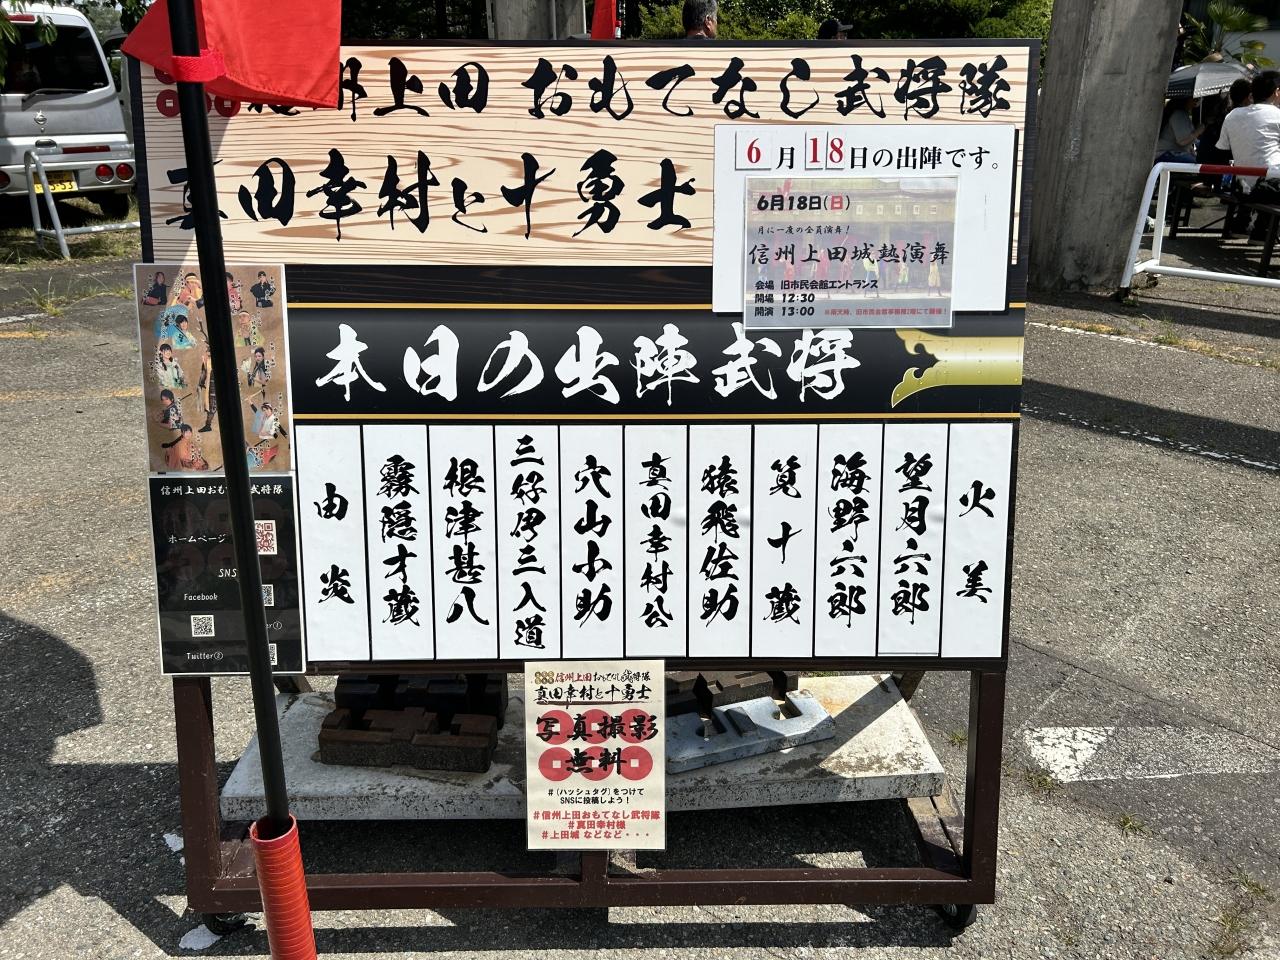 州上田 おもてなし武将隊
真田幸村と十勇士
6月18日の出陣です。
6月18日(日)
月に一度の全員演舞！
信州上田城熱演舞
会場 旧市民会館エントランス
開場 12:30
開演 13:00
※雨天時、旧市民会館事務棟2階にて開催！
本日の出陣武将
火美
望月六郎
海野六郎
筧十蔵
猿飛佐助
真田幸村公
穴山小助
三好伊三入道
根津甚八
霧隠才蔵
由炎
信州上田おもて 武将隊
ホームページ
SNS
Facebook
Twitter②
信州上田おもてなし武将隊
真田幸村と十勇士
写真撮影
無料
#（ハッシュタグ）をつけて
SNSに投稿しよう！
#信州上田おもてなし武将隊
#真田幸村様
#上田城 などなど・・・